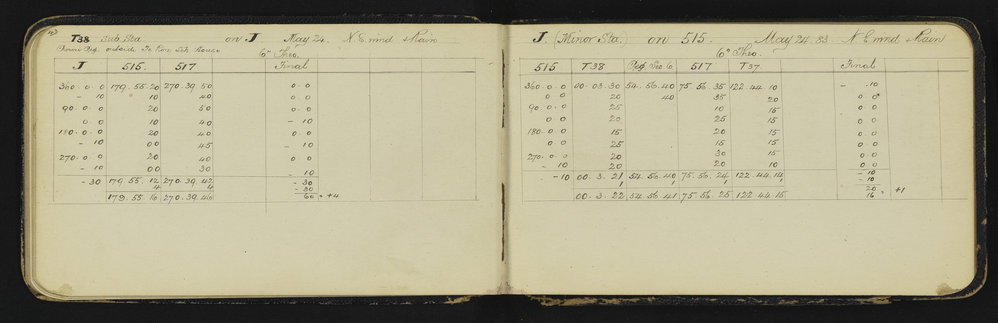 T38 Sub Sta on J May 24. N.E. wind & Rain
Peg. outside Te School House
6" Theo.
J 515. 517 Final
360.0.0 179.55.20 270.39.50 0.0
- 10 10 40 0.0
90.0.0 20 50 0.0
0.0 10 40 - 10
180.0.0 20 40 0.0
- 10 00 45 - 10
270.0.0 20 40 0.0
- 10 00 30 - 10
- 30 179.55.12 270.39.42 - 30
4 4 - 30
179.55.16 270.39.46 60 = +4
J. (Minor Sta.) on 515. May 24.83. N.E. wind & Rain
6" Theo.
515 T38 Peg Sec 6 517 T37. Final
360.0.0 00.03.30 54.56.40 75.56.35 122.44.10 - 10
0.0 20 40 35 20 0.0
90.0.0 25 10 15 0.0
0.0 20 25 15 0.0
180.0.0 15 20 15 0.0
0.0 25 15 15 0.0
270.0.0 20 30 15 0.0
- 10 20 20 10 0.0
- 10 00.3.21 54.56.40 75.56.24 122.44.14 - 10
1 1 1 1 - 10
00.3.22 54.56.41 75.56.25 122.44.15 20 = +1
16